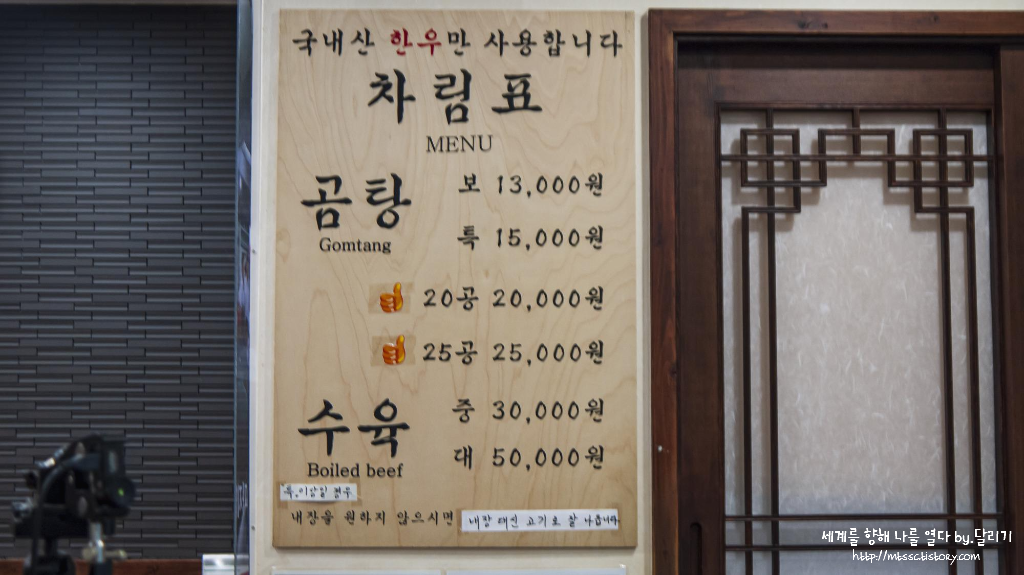 국내산 한우만 사용합니다
차림표
MENU
곰탕
Gomtang
보 13,000원
특 15,000원
20공 20,000원
25공 25,000원
수육
Boiled beef
중 30,000원
대 50,000원
특,이상일 경우
내장을 원하지 않으시면 내장 대신 고기로 잘 나옵니다
세계를 향해 나를 열다 by.달리기
http://mtssc.tistory.com